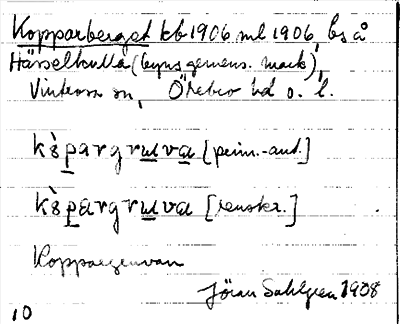 Kopparberget kb 1906 ml 1906, bs å
Hässelkulla (byns gemens. mark),
Vintrosa sn, Örebro hd o. l.
kòpargruva [prim.-ant.]
kòpargruva [renskr.]
Koppargruvan
Jöran Sahlgren 1908
10